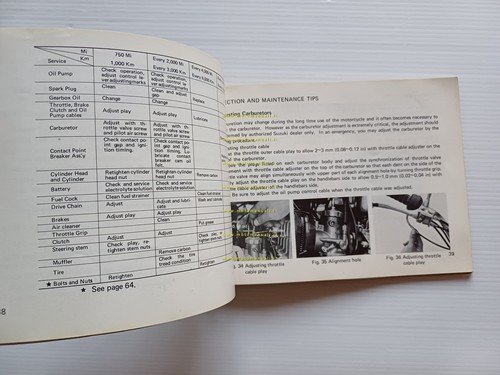 Mi
Km
Service
750 Mi
1,000 Km
Every 2,000 Mi
Every 3,000 Km
Every 4,000
Oil Pump
Check operation, adjust control lever adjusting marks
Check operation, adjust control lever adjusting marks
Spark Plug
Clean
Clean and adjust gap
Replace
Gearbox Oil
Change
Change
Throttle, Brake Clutch and Oil Pump cables
Adjust play
Adjust play
Lubricate
Carburetor
Adjust with throttle valve screw and pilot air screw
Adjust with throttle valve screw and pilot air screw
Contact Point Breaker Ass'y
Check contact point gap and ignition timing.
Check contact point gap and ignition timing. Lubricate contact breaker cam oil
Cylinder Head and Cylinder
Retighten cylinder head nut
Retighten cylinder head nut
Remove carbon
Battery
Check and service electrolyte solution
Check and service electrolyte solution
Fuel Cock
Clean fuel strainer
Clean fuel strainer
Drive Chain
Adjust
Adjust and lubricate
Wash and
Brakes
Adjust play
Adjust play
Air cleaner
Clean
Throttle Grip
Put grease
Clutch
Adjust
Adjust
Steering stem
Check play, retighten stem nuts
Check play, retighten stem nuts
Muffler
Remove carbon
Tire
Check the tire tread condition
★ Bolts and Nuts
Retighten
Retighten
★ See page 64.
38
ECTION AND MAINTENANCE TIPS
usting Carburetors
uration may change during the long use of the motorcycle and it often becomes necessary to
the carburetor. However as the carburetor adjustment is extremely critical, the adjustment should
formed by authorized Suzuki dealer only. In an emergency, you may adjust the carburetor by the
procedure.
sting throttle cable
st the throttle outer cable play to allow 2~3 mm (0.08~0.12 in) with throttle cable adjuster on
of the carburetor.
the fitted on each carburetor body and adjust the synchronization of throttle valve
ement with throttle cable adjuster on the top of the carburetor so that each dent on the side of the
tle valve may align simultaneously with upper part of each alignment hole by turning throttle grip.
ly adjust the throttle cable play on the handlebars side to allow 0.5~1.0 mm (0.02~0.04 in) with
cable adjuster of the handlebars side.
Be sure to adjust the oil pump control cable when the throttle cable was adjusted.
Fig. 34 Adjusting throttle
cable play
Fig. 35 Alignment hole
Fig. 36 Adjusting throttle
cable play
39